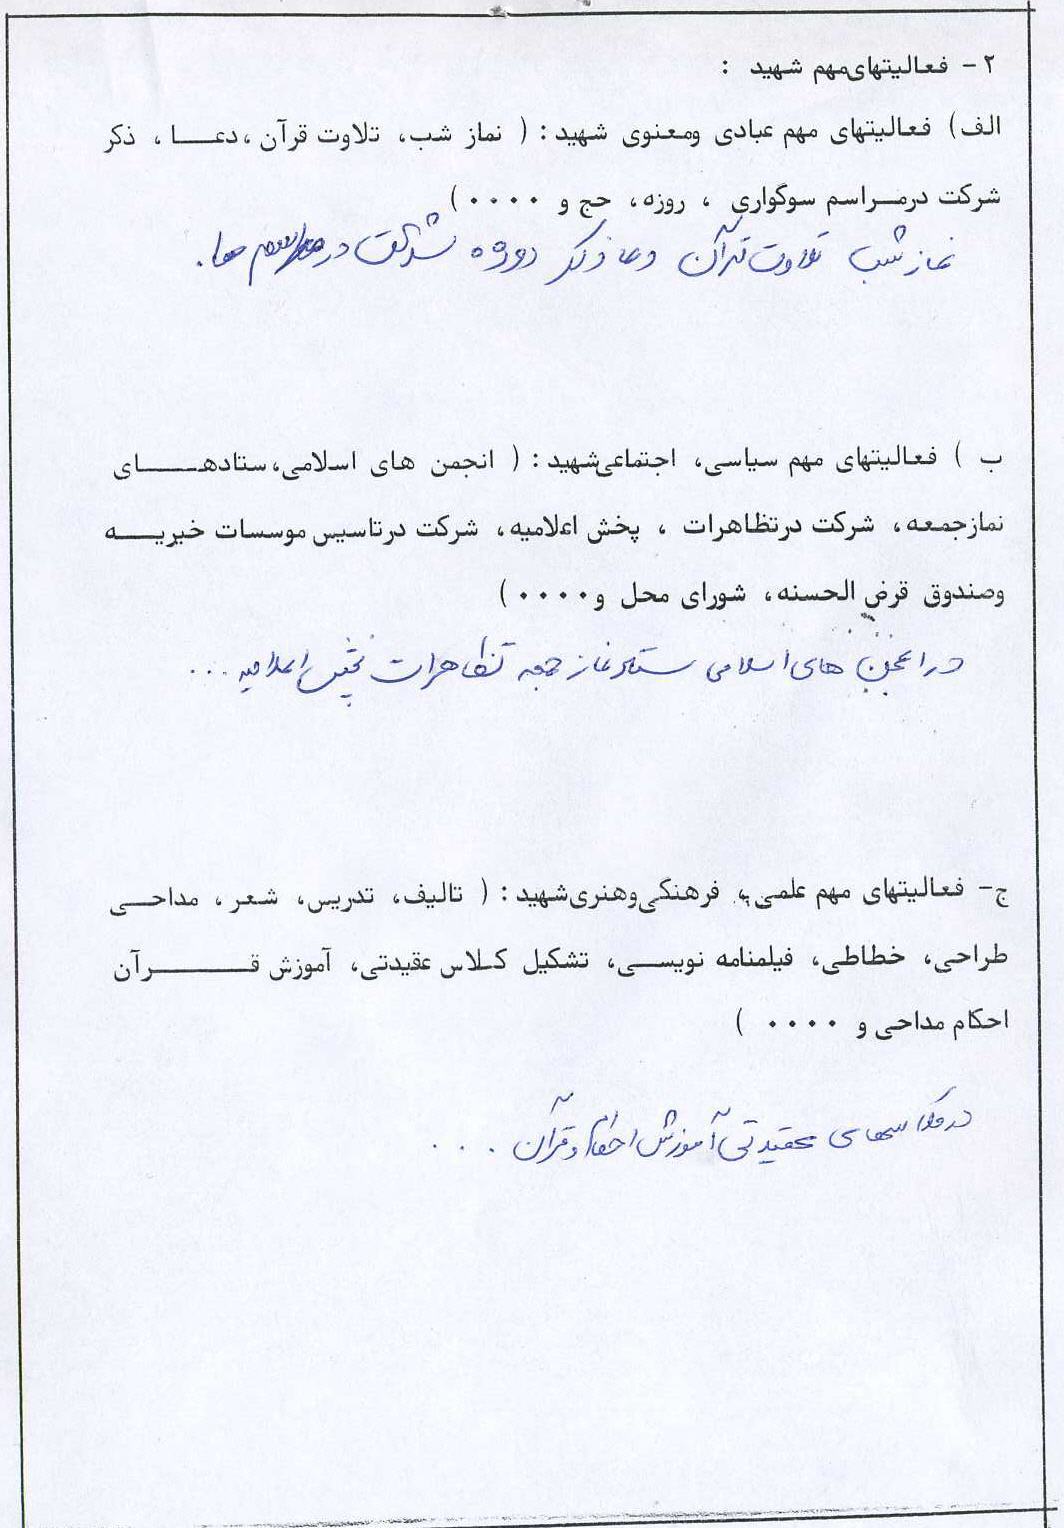 ۲ - فعالیتهای مهم شهید :
الف) فعالیتهای مهم عبادی ومعنوی شهید : ( نماز شب، تلاوت قرآن ،دعـــا ، ذکر
شرکت درمــراسم سوگواری ، روزه، حج و ۰۰۰۰ )
نماز شب تلاوت قرآن دعا ذکر روزه شرکت در مراسم ها.
ب ) فعالیتهای مهم سیاسی، اجتماعی شهید : ( انجمن های اسلامی،ستادهــــای
نمازجمعه، شرکت درتظاهرات ، پخش اعلامیه، شرکت درتاسیس موسسات خیریــه
وصندوق قرض الحسنه، شورای محل و ۰۰۰۰ )
در انجمن های اسلامی ستاد نماز جمعه تظاهرات پخش اعلامیه ...
ج- فعالیتهای مهم علمی، فرهنگی وهنری شهید : ( تالیف، تدریس، شعر ، مداحــی
طراحی، خطاطی، فیلمنامه نویســی، تشکیل کـلاس عقیدتی، آموزش قــــــرآن
احکام مداحی و ۰۰۰۰ )
در کلاسهای عقیدتی آموزش احکام و قرآن ...